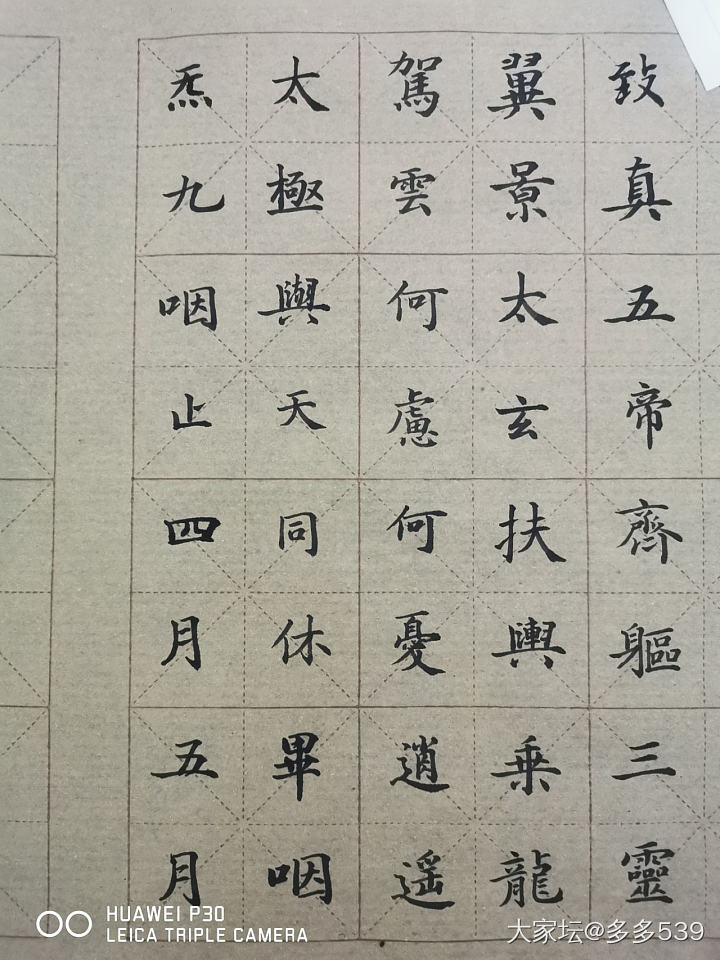 致真五帝齊軀三靈
翼景太玄扶輿乘龍
駕雲何慮何憂逍遥
太極與天同休畢咽
炁九咽止四月五月
HUAWEI P30
LEICA TRIPLE CAMERA
大家坛@多多539